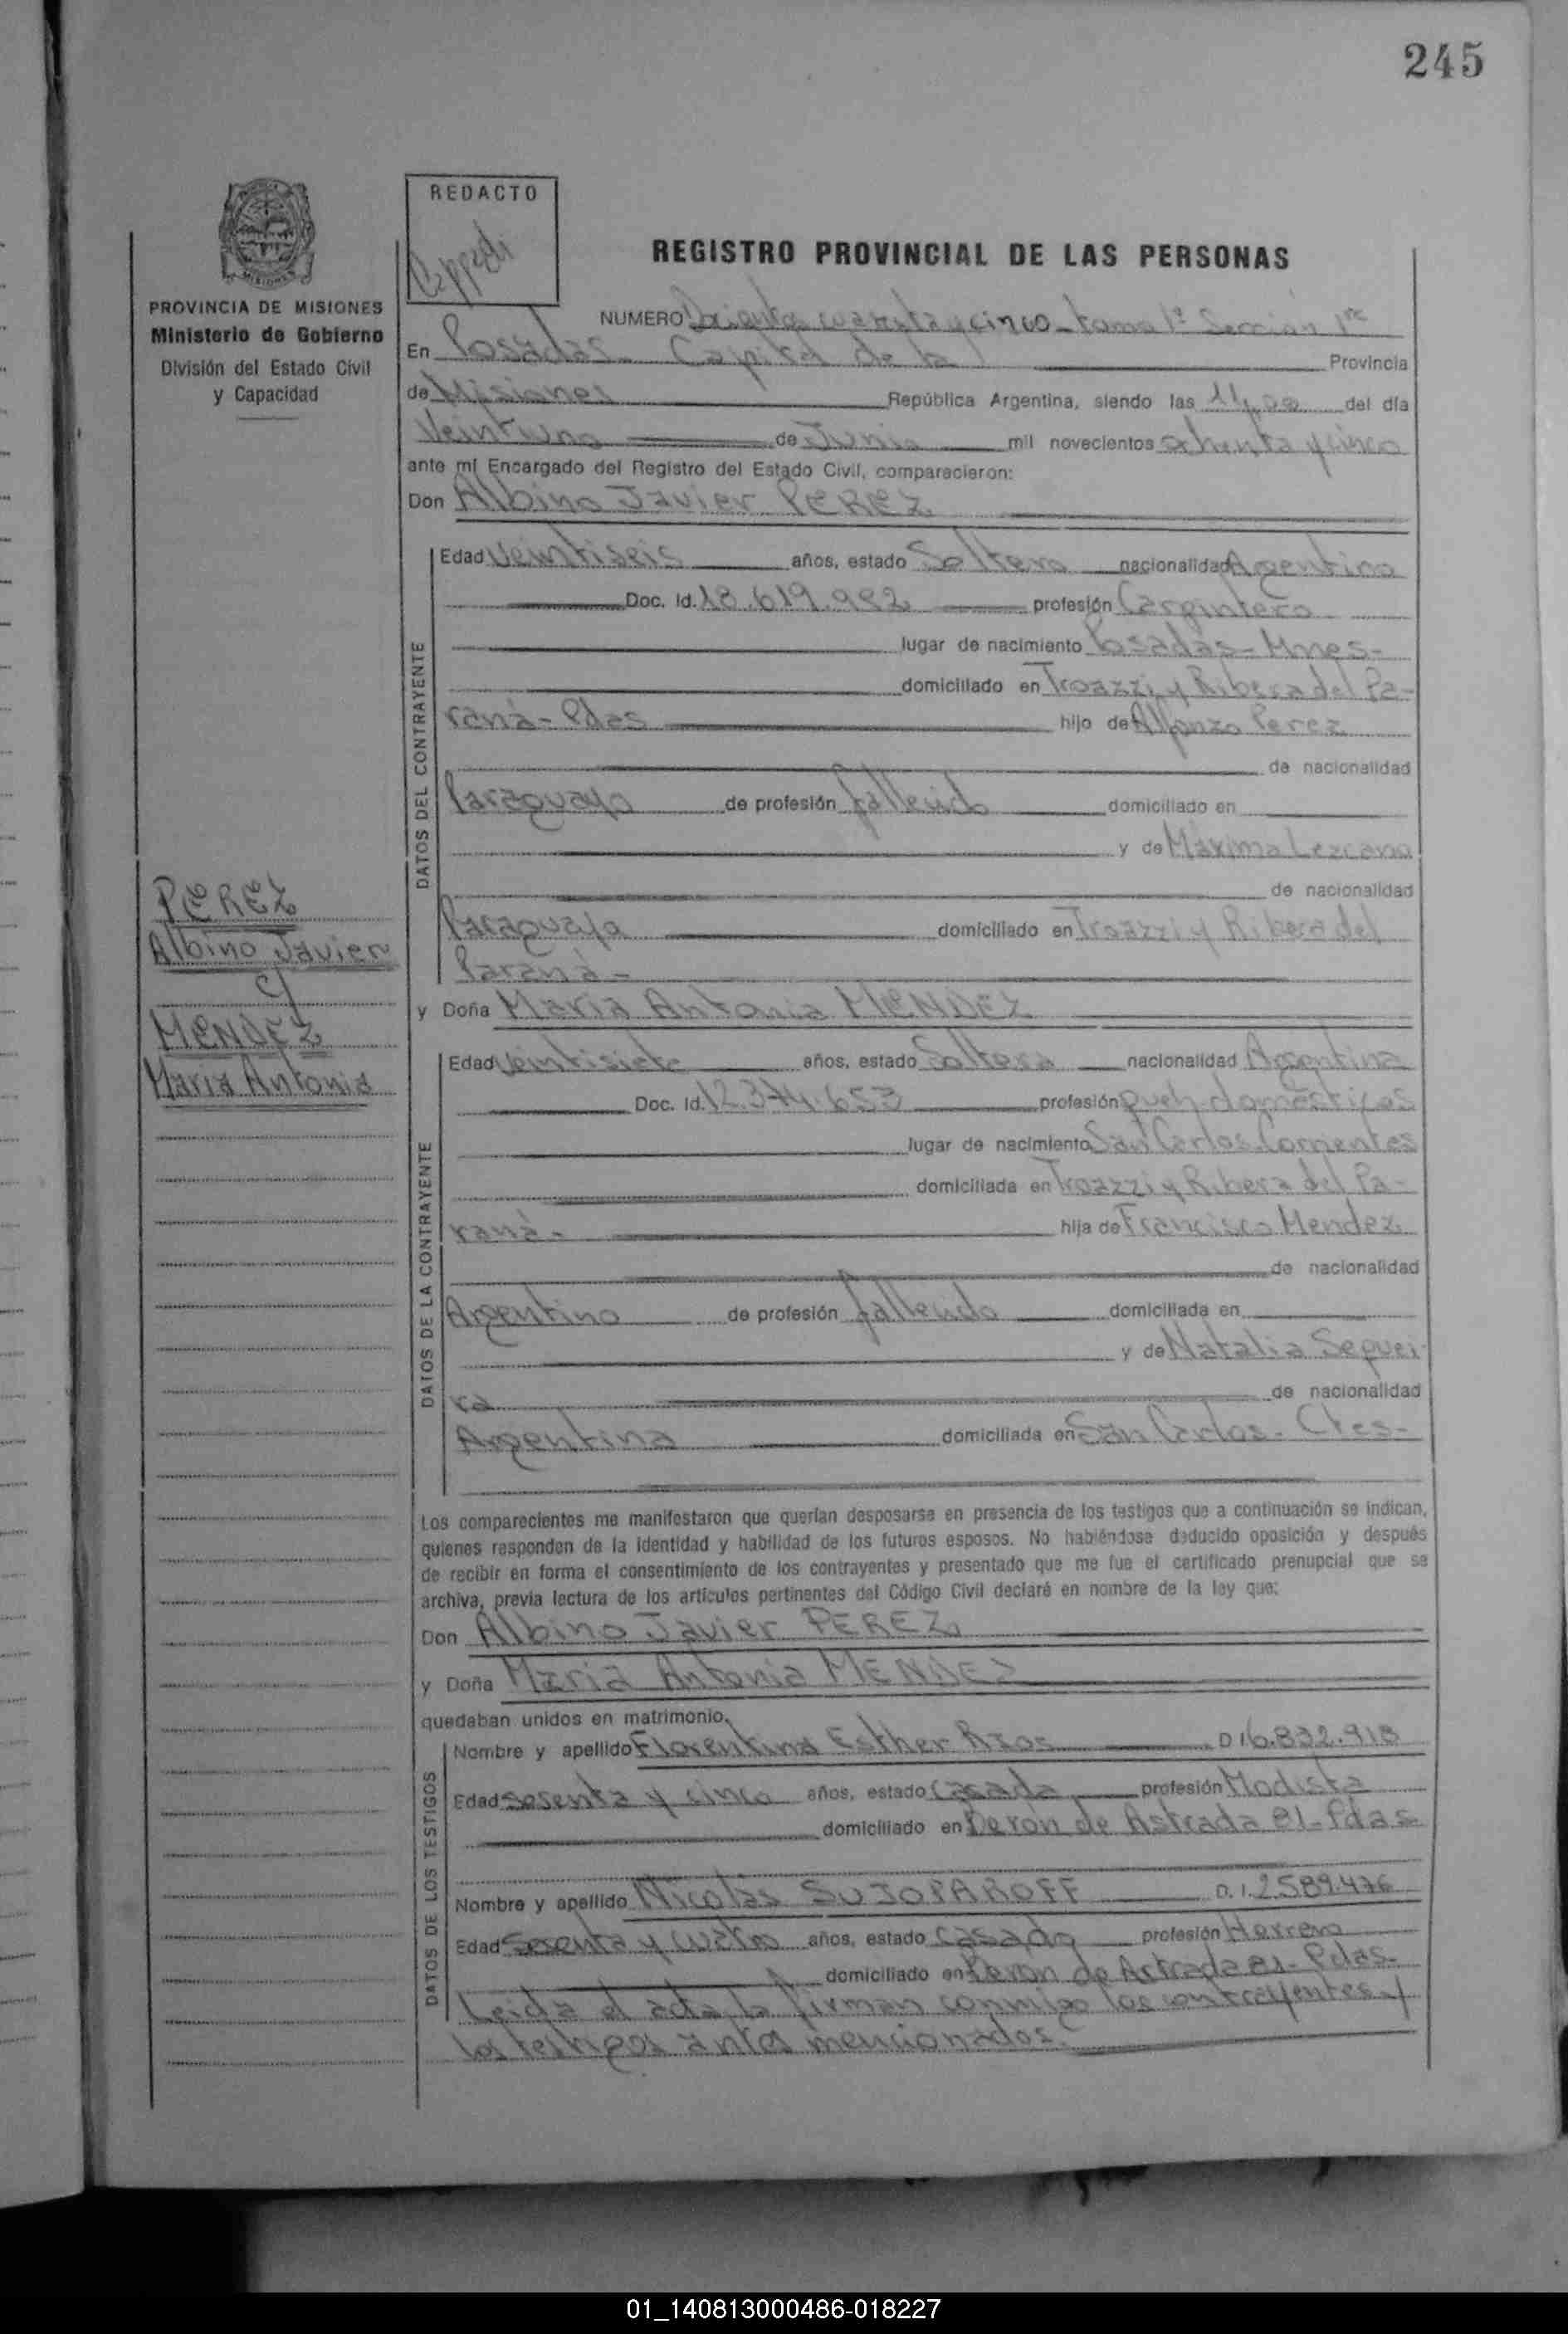 245
REDACTO
REGISTRO PROVINCIAL DE LAS PERSONAS
PROVINCIA DE MISIONES
Ministerio de Gobierno
División del Estado Civil
y Capacidad
NUMERO Doscientos cuarenta y cinco - tomo 1º Sección 1ra
En Posadas - Capital de la Provincia
de Misiones República Argentina, siendo las 11,00 del día
Veintiuno de Junio mil novecientos ochenta y cinco
ante mí Encargado del Registro del Estado Civil, comparecieron:
Don Albino Javier PEREZ
DATOS DEL CONTRAYENTE
Edad Veintiseis años, estado Soltero nacionalidad Argentino
Doc. Id. 18.619.982 profesión Carpintero
lugar de nacimiento Posadas - Mnes -
domiciliado en Troazzi y Ribera del Pa-
raná - Pdas hijo de Alfonzo Perez
de nacionalidad
Paraguayo de profesión fallecido domiciliado en
y de Máxima Lezcano
de nacionalidad
Paraguaya domiciliado en Troazzi y Ribera del
Paraná -
PEREZ
Albino Javier
y
MENDEZ
Maria Antonia
y Doña Maria Antonia MENDEZ
DATOS DE LA CONTRAYENTE
Edad veintisiete años, estado Soltera nacionalidad Argentina
Doc. Id. 12.374.653 profesión queh. domésticos
lugar de nacimiento San Carlos. Corrientes
domiciliada en Troazzi y Ribera del Pa-
raná - hija de Francisco Mendez
de nacionalidad
Argentino de profesión fallecido domiciliada en
y de Natalia Sequei-
ra de nacionalidad
Argentina domiciliada en San Carlos - Ctes -
Los comparecientes me manifestaron que querían desposarse en presencia de los testigos que a continuación se indican,
quienes responden de la identidad y habilidad de los futuros esposos. No habiéndose deducido oposición y después
de recibir en forma el consentimiento de los contrayentes y presentado que me fue el certificado prenupcial que se
archiva, previa lectura de los artículos pertinentes del Código Civil declaré en nombre de la ley que:
Don Albino Javier PEREZ
y Doña Maria Antonia MENDEZ
quedaban unidos en matrimonio.
DATOS DE LOS TESTIGOS
Nombre y apellido Florentina Esther Rios D 16.832.913
Edad sesenta y cinco años, estado casada profesión Modista
domiciliado en Beron de Astrada 81 - Pdas
Nombre y apellido Nicolás SUJOPAROFF D.I. 2.589.476
Edad Sesenta y cuatro años, estado casado profesión Herrero
domiciliado en Beron de Astrada 81 - Pdas -
Leida el acta la firman conmigo los contrayentes y
los testigos antes mencionados.
01_140813000486-018227